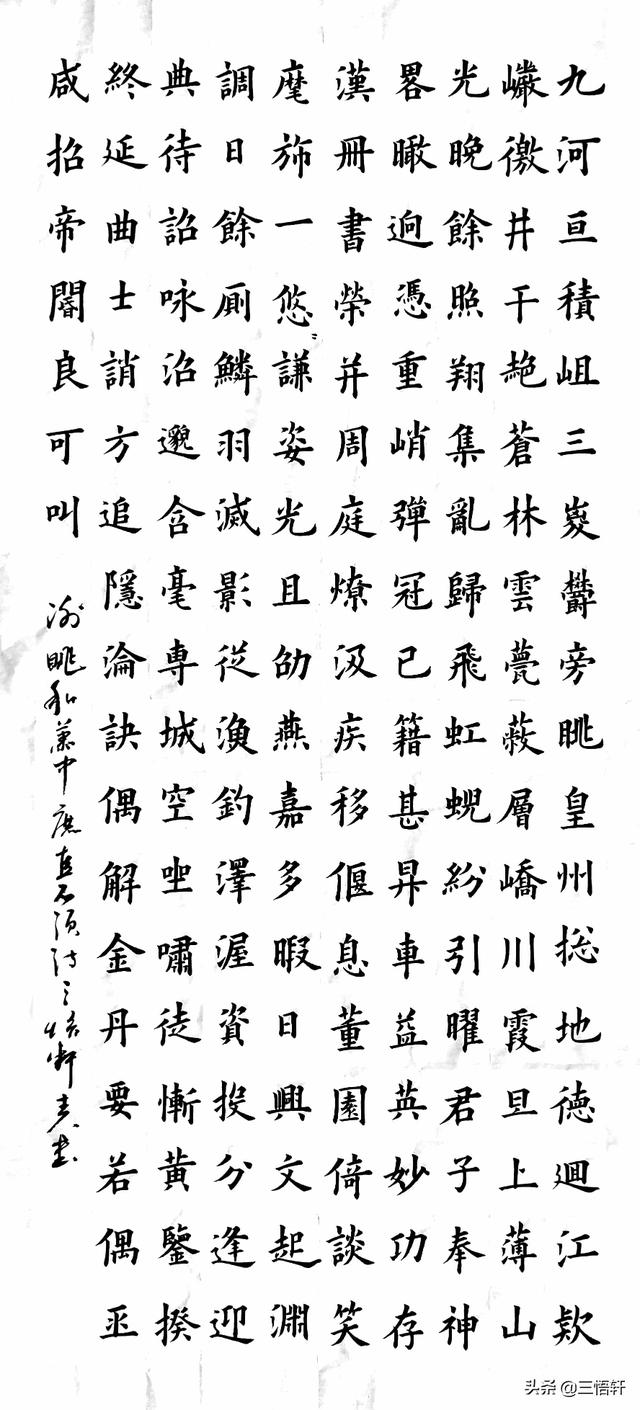 九河亘積岨三嵏欝旁眺皇州揔地徳迴江欵
巖徼井干艴蒼林雲甍蔽層嶠川霞旦上薄山
光晚餘照翔集亂歸飛虹蜺紛引曜君子奉神
畧瞰逈憑重峭彈冠已籍甚昇車益英妙功存
漢冊書榮并周庭燎汲疾移偃息董園倚談笑
麾斾一悠〻謙姿光且劭燕嘉多暇日興文起淵
調日餘厠鱗羽滅影從漁釣澤渥資投分逢迎
典待詔咏沼邈含毫専城空坐嘯徒慚黃鑒揆
終延曲士誚方追隱淪訣偶解金丹要若偶巫
咸招帝閽良可叫
謝眺和蕭中庶直石頭詩三悟軒主書
头条 @三悟轩